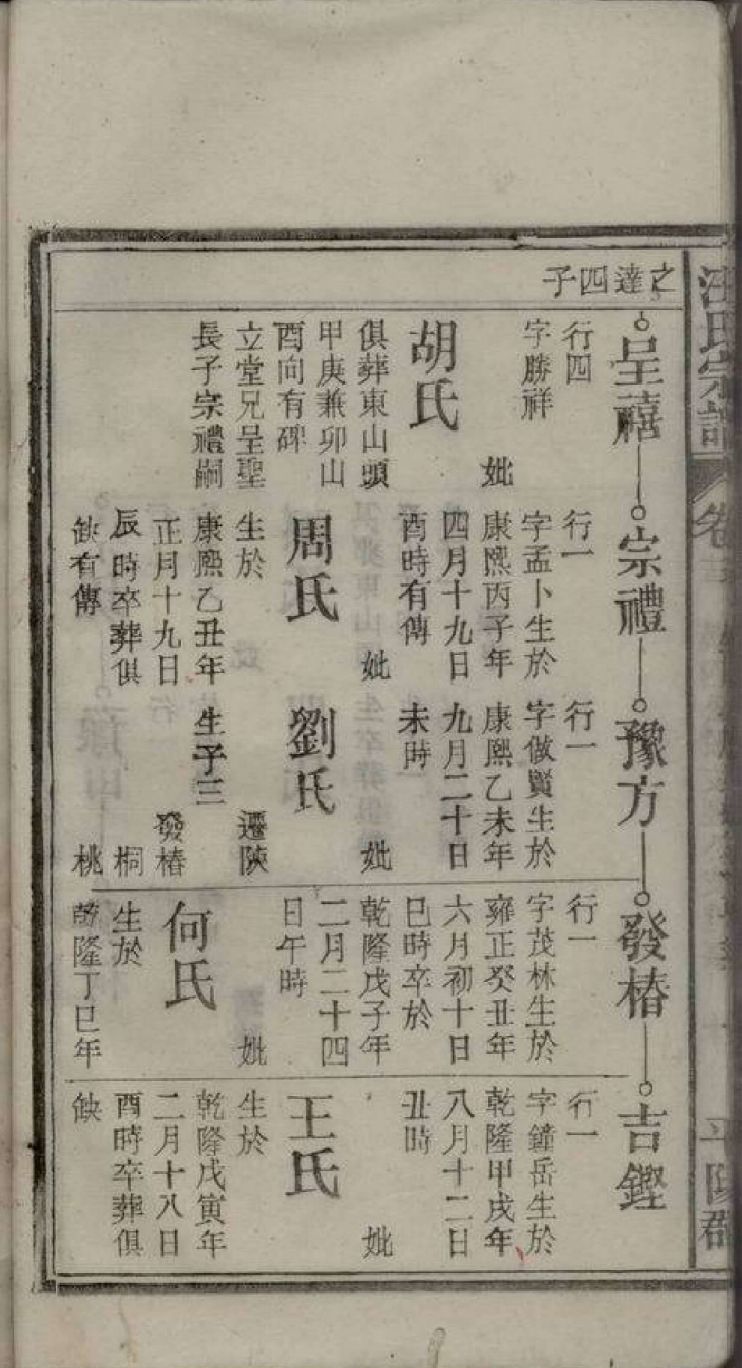 汪氏宗譜
卷
平陽郡
之達四子
呈禧
行四
字勝祥
妣
胡氏
俱葬東山頭
甲庚兼卯山
酉向有碑
立堂兄呈聖
長子宗禮嗣
宗禮
行一
字孟卜生於
康熙丙子年
四月十九日
酉時有傳
妣
周氏
生於
康熙乙丑年
正月十九日
辰時卒葬俱
缺有傳
豫方
行一
字做賢生於
康熙乙未年
九月二十日
未時
妣
劉氏
遷陝
生子三
發椿
桐
桃
發椿
行一
字茂林生於
雍正癸丑年
六月初十日
巳時卒於
乾隆戊子年
二月二十四
日午時
妣
何氏
生於
乾隆丁巳年
吉鏗
行一
字鐘岳生於
乾隆甲戌年
八月十二日
丑時
妣
王氏
生於
乾隆戊寅年
二月十八日
酉時卒葬俱
缺